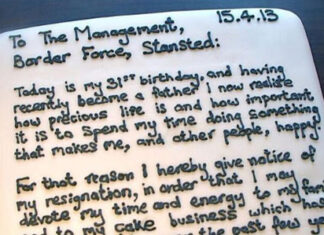 15.4.13
To The Management,
Border Force, Stansted:
Today is my 31st birthday, and having
recently become a father I now realise
how precious life is and how important
it is to spend my time doing something
that makes me, and other people, happy.
For that reason I hereby give notice of
my resignation, in order that I may
devote my time and energy to my fam
my cake business which has
the past few ye